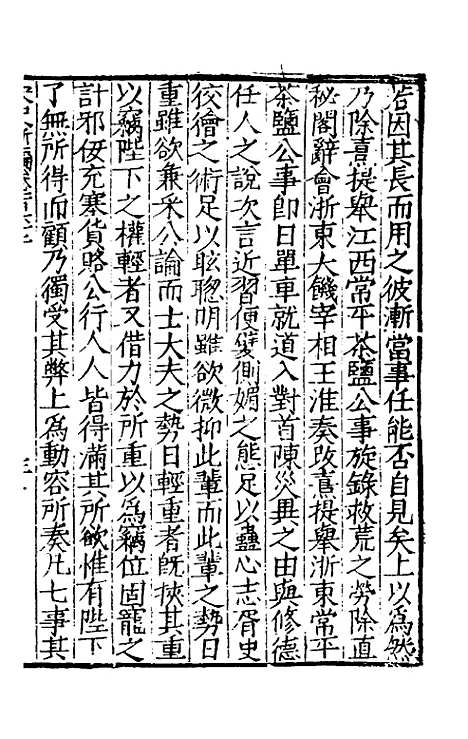 若因其長而用之彼漸當事任能否自見矣上以為然
乃除熹提舉江西常平茶鹽公事旋錄救荒之勞除直
秘閣辭會浙東大饑宰相王淮奏改熹提舉浙東常平
茶鹽公事即日單車就道入對首陳災異之由與修德
任人之說次言近習便嬖側媚之態足以蠱心志胥史
狡獪之術足以眩聰明雖欲微抑此輩而此輩之勢日
重雖欲兼采公論而士大夫之勢日輕重者既挾其重
以竊陛下之權輕者又借力於所重以為竊位固寵之
計邪佞充塞貨賂公行人人皆得滿其所欲惟有陛下
了無所得而顧乃獨受其弊上為動容所奏凡七事其